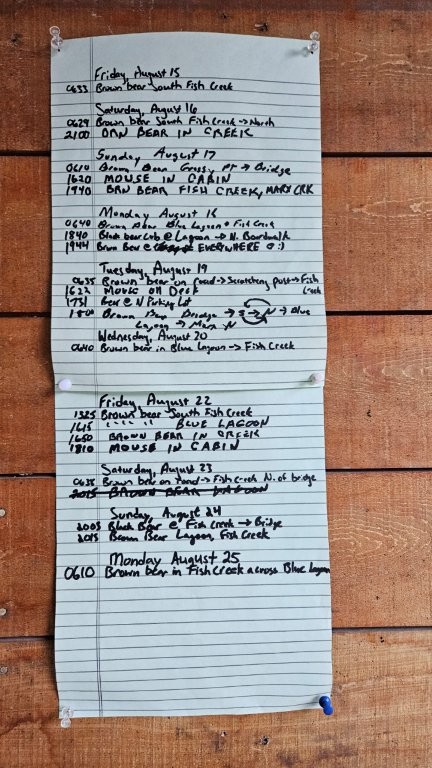 Friday, August 15
0633 Brown bear South Fish Creek
Saturday, August 16
0629 Brown bear South Fish Creek → North
2100 BRN BEAR IN CREEK
Sunday August 17
0610 Brown Bear Grassy PT → Bridge
1620 MOUSE IN CABIN
1940 BRN BEAR FISH CREEK, MARX CRK
Monday August 18
0640 Brown Bear Blue Lagoon + Fish Creek
1840 Black bear Cub @ Lagoon → N. Boardwalk
1944 Brwn Bear @ EVERYWHERE :)
Tuesday, August 19
0635 Brown bear on road → Scratching post → Fish
Creek
1623 Mouse on Deck
1731 Bear @ N Parking Lot
Brown Bear Bridge → S → N → Blue
Lagoon → Marx N
Wednesday, August 20
0640 Brown bear in Blue Lagoon → Fish Creek
Friday, August 22
1325 Brown bear South Fish Creek
1615 " " " " BLUE LAGOON
1650 BROWN BEAR IN CREEK
1810 MOUSE IN CABIN
Saturday, August 23
0635 Brown bear on road → Fish Creek N. of bridge
2015 BROWN BEAR LAGOON
Sunday, August 24
2005 Black Bear @ Fish Creek → Bridge
2015 Brown Bear Lagoon, Fish Creek
Monday August 25
0610 Brown bear in Fish Creek across Blue Lagoon